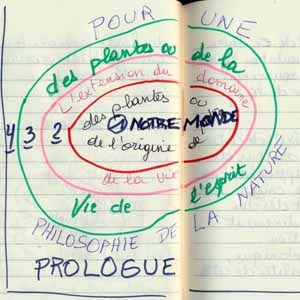 POUR UNE
des plantes ou de la
L'extension du domaine
des plantes ou
4 3 2 1 NOTRE MONDE
de l'origine de
de la vie
Vie de l'esprit
PHILOSOPHIE DE LA NATURE
PROLOGUE